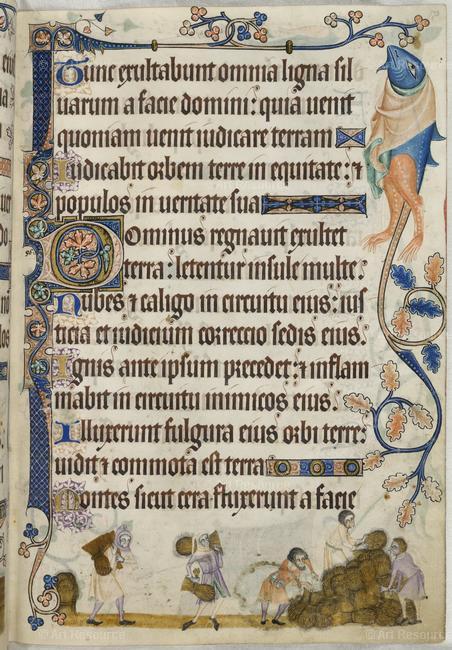 Tunc exultabunt omnia ligna sil
uarum a facie domini: quia uenit
quoniam uenit iudicare terram
Iudicabit orbem terre in equitate: ⁊
populos in ueritate sua
Dominus regnauit exultet
terra: letentur insule multe:
Nubes ⁊ caligo in circuitu eius: ius
ticia et iudicium correccio sedis eius.
Ignis ante ipsum precedet: ⁊ inflam
mabit in circuitu inimicos eius.
Illuxerunt fulgura eius orbi terre:
uidit ⁊ commota est terra
Montes sicut cera fluxerunt a facie
© Art Resource
© Art Resource